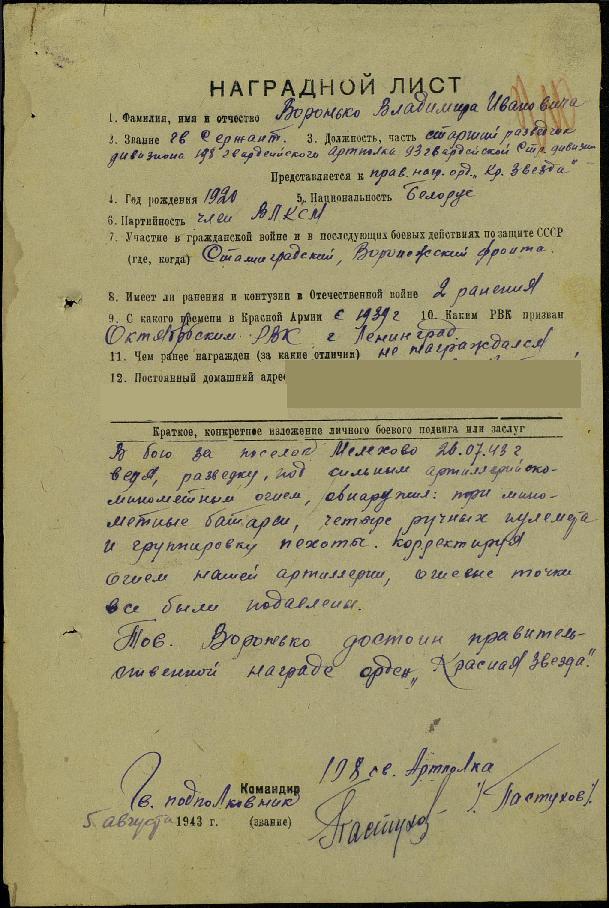 НАГРАДНОЙ ЛИСТ
1. Фамилия, имя и отчество Воронько Владимира Ивановича
2. Звание гв Сержант. 3. Должность, часть старший разведчик
дивизиона 198 гвардейского Артполка 93 гвардейской Стр. дивизии
Представляется к прав. наг. орд. „Кр. Звезда"
4. Год рождения 1920 5. Национальность Белорус
6. Партийность член ВЛКСМ
7. Участие в гражданской войне и в последующих боевых действиях по защите СССР
(где, когда) Сталинградский, Воронежский фронта.
8. Имеет ли ранения и контузии в Отечественной войне 2 ранения
9. С какого времени в Красной Армии с 1939 г 10. Каким РВК призван
Октябрьским РВК г Ленинград
11. Чем ранее награжден (за какие отличия) не награждался
12. Постоянный домашний адрес
Краткое, конкретное изложение личного боевого подвига или заслуг
В бою за поселок Мелехово 26.07.43 г
ведя, разведку, под сильным артиллерийско-
минометным огнем, обнаружил: три мино-
метные батареи, четыре ручных пулемета
и группировку пехоты. корректируя
огнем нашей артиллерии, огневые точки
все были подавлены.
Тов. Воронько достоин правитель-
ственной награде орден „Красная Звезда".
198 гв. Артполка
Командир
Гв. подполковник /Пастухов/.
5 августа 1943 г. (звание) Пастухов